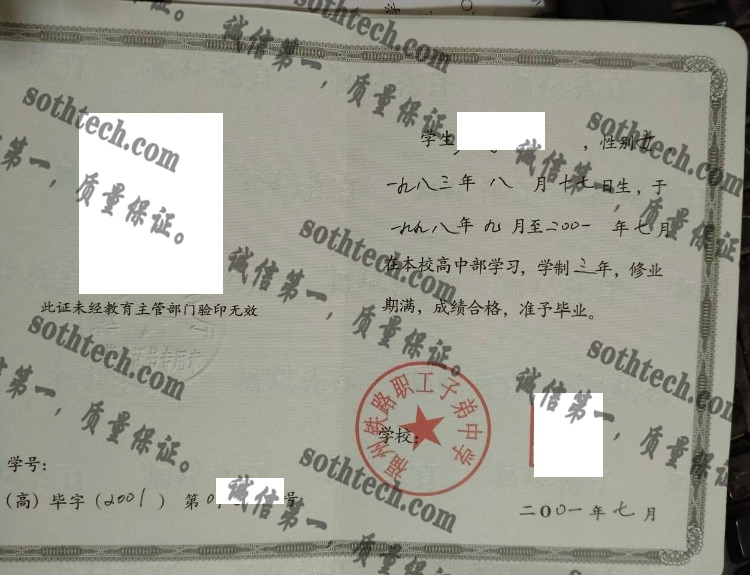 此证未经教育主管部门验印无效
学号:
(高) 毕字 (2001) 第0, 号
学生 , 性别女,
一九八三年 八 月 十七日生, 于
一九九八年 九 月至二00一 年 七 月
在本校高中部学习, 学制 三 年, 修业
期满, 成绩合格, 准予毕业。
福州铁路职工子弟中学
学校:
二00一 年 七 月
sothtech.com
诚信第一, 质量保证。
sothtech.com
诚信第一, 质量保证。
sothtech.com
诚信第一, 质量保证。
sothtech.com
诚信第一, 质量保证。
sothtech.com
诚信第一, 质量保证
sothtech.com
诚信第一, 质量保证。
sothtech.com
诚信第一, 质量保
sothtech.com
诚信第一, 质量保